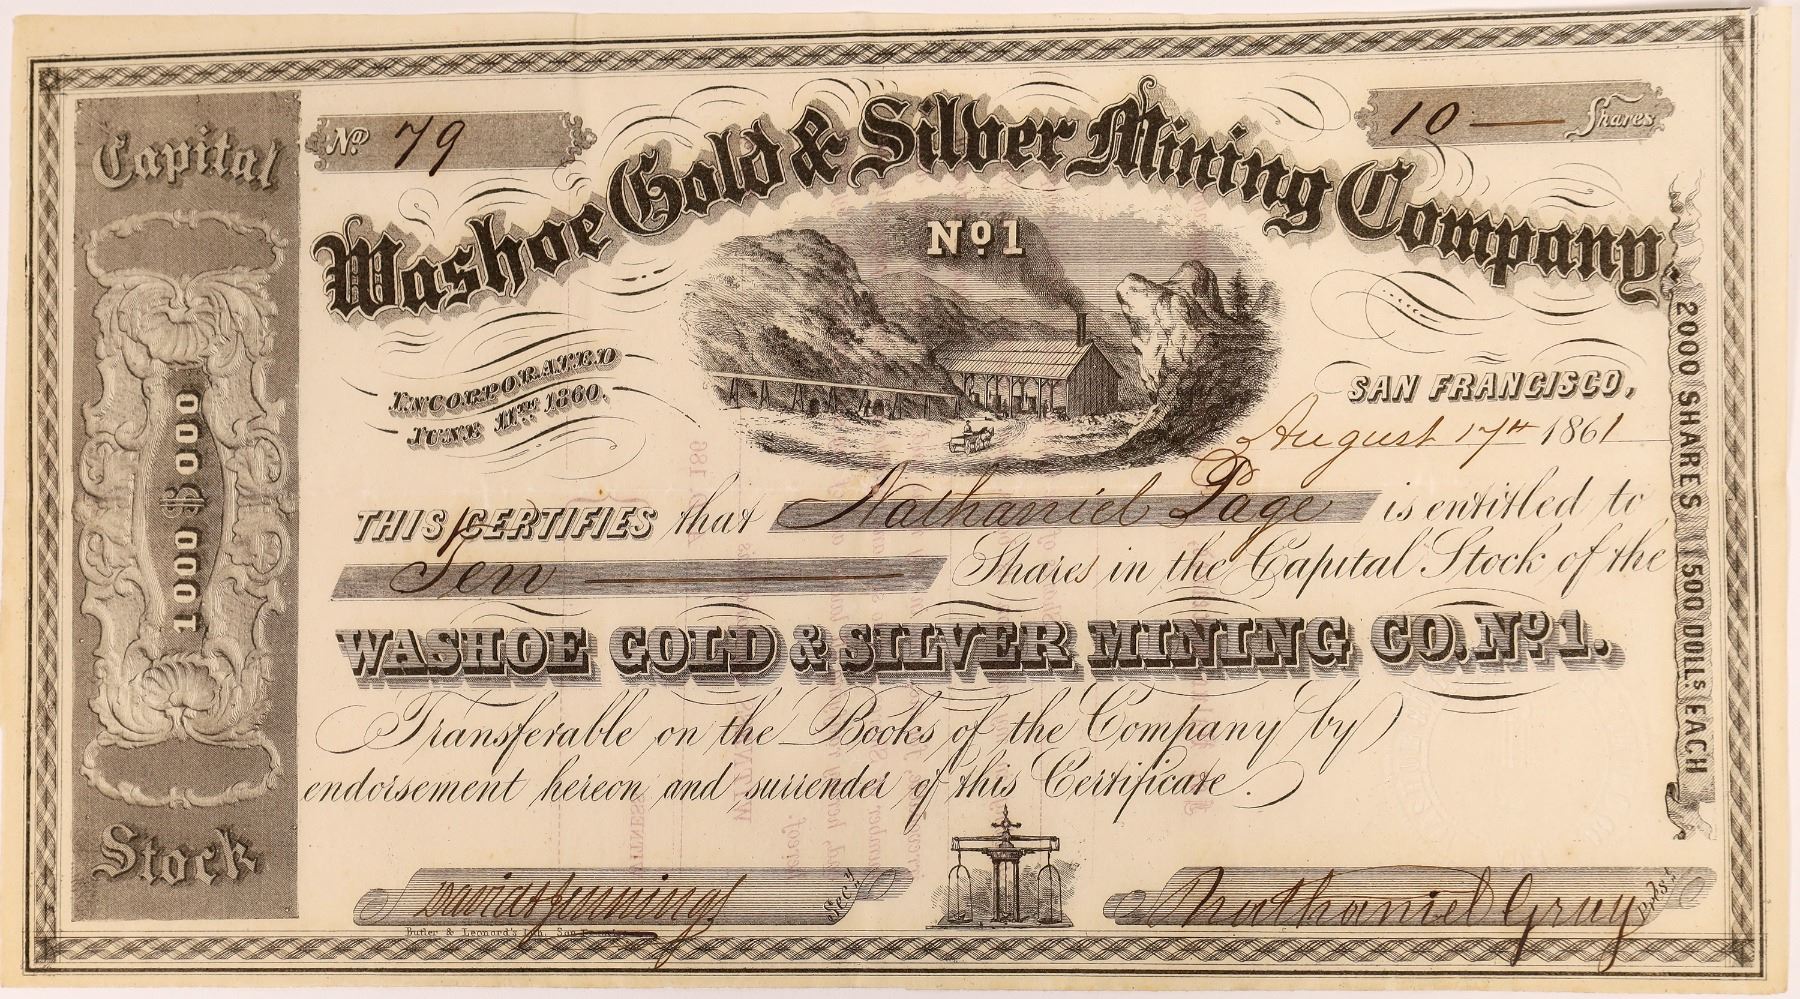 Nº 79
10 — Shares
Washoe Gold & Silver Mining Company.
Nº 1
INCORPORATED
JUNE 11TH 1860.
SAN FRANCISCO,
August 17th 1861
THIS CERTIFIES that Nathaniel Page is entitled to
Ten — Shares in the Capital Stock of the
WASHOE GOLD & SILVER MINING CO. Nº 1.
Transferable on the Books of the Company by
endorsement hereon and surrender of this Certificate.
Jennings Secy
Nathaniel Gray Prest
Butler & Leonard's Lith. San
Capital
1000 $ 000
Stock
2000 SHARES 1500 DOLLS EACH